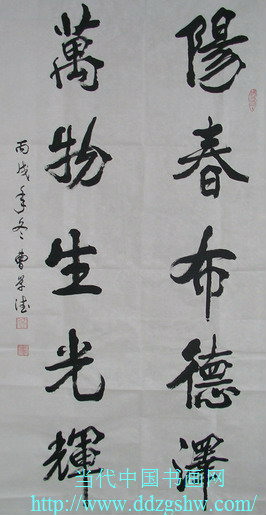 陽春布德澤
萬物生光輝
丙戌年冬
當代中国书画网
http://www.ddzgshw.com/